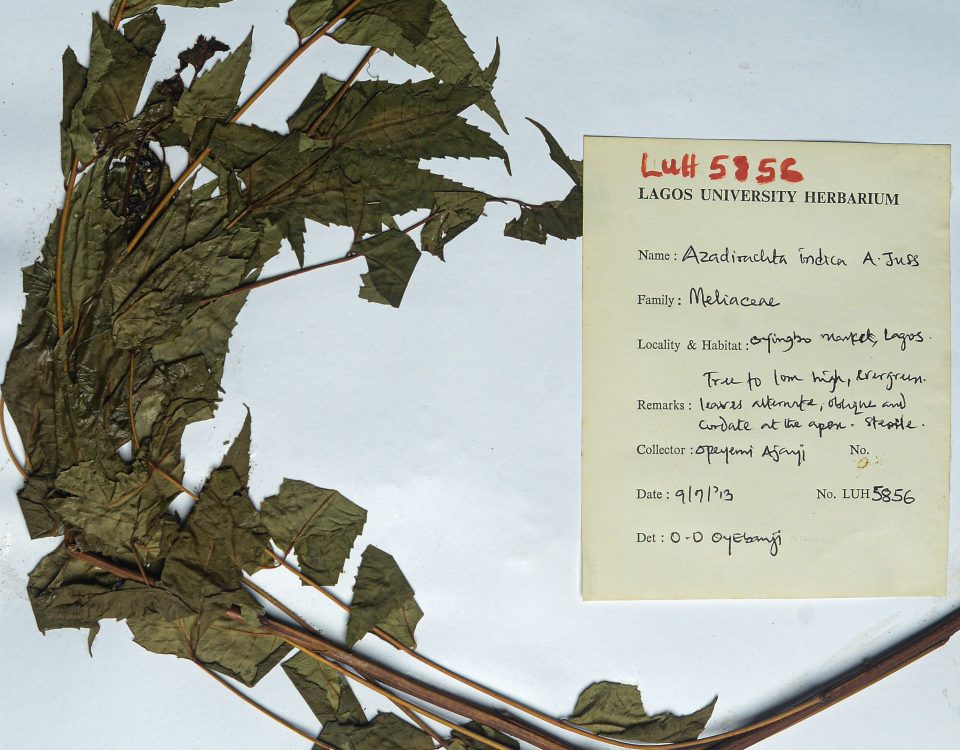 LUH 5856
LAGOS UNIVERSITY HERBARIUM
Name: Azadirachta indica A. Juss
Family: Meliaceae
Locality & Habitat: oyingbo market, Lagos.
Tree to 10m high, evergreen.
Remarks: leaves alternate, oblique and
cordate at the apex. Sterile.
Collector: Opeyemi Ajayi No.
Date: 9/7/'13 No. LUH 5856
Det: O-O Oyebanji